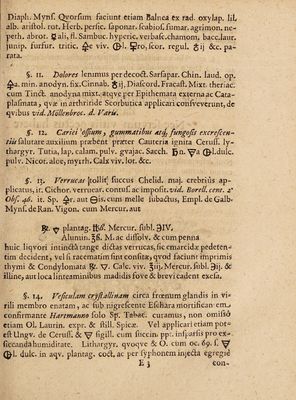 Diaph. Myns. Qvorsum faciunt etiam Balnea ex rad. oxylap. lil.
alb. aristol. rot. Herb. persic. saponar. scabios. fumar. agrimon. ne-
peth. abrot. ali, fl. Sambuc. hyperic. verbasc. chamom, bacc. laur.
junip. furfur. tritic. viv. l. scor. regul. ij &c. pa-
rata.
§. 11. Dolores lenimus per decoct. Sarsapar. Chin. laud. op.
min. anodyn. fix. Cinnab. ij, Diascord. Fracast. Mixt. theriac.
cum Tinct. anodyna mixt. atqve per Epithemata externa ac Cata-
plasmata, quæ in arthritide Scorbutica applicari consveverunt, de
qvibus vid. Möllenbroc. d. Varis.
§. 12. Cariei ossium, gummatibus atq; fungosis excrescen-
tiis salutare auxilium præbent præter Cauteria ignita Ceruss. ly-
thargyr. Tutia, lap. calam. pulv. gvajac. Sacch. ♄n. a l. dulc.
pulv. Nicot. aloe, myrrh. Calx viv. lot. &c.
§. 13. Verrucas tollit succus Chelid. maj. crebriùs ap-
plicatus, it. Cichor. verrucar. contus. ac imposit. vid. Borell. cent. 2
Obs. 46. it. Sp. aut is. cum melle subactus, Empl. de Galb-
Myns. de Ran. Vigon. cum Mercur. aut
℞. plantag. ℔. Mercur. subl. ℈IV.
Alumin. M. ac dissolv. & cum penna
huic liqvori intinctâ range dictas verrucas, se emarcidæ pedeten-
tim decident, vel si racematim sunt consitæ, qvod faciunt imprimis
thymi & Condylomata ℞. Calc. viv. ij. Mercur. subl. ij &
illine, aut loca linteaminibus madidis fove & brevi cadent exesa.
§. 14. Vesiculam crystallinam circa frœnum glandis in vi-
rili membro enatam, ac sub nigrescente Eschara mortificatam
confirmante Hartmanno solo Sp. Tabac. curamus, non omisso
etiam Ol. Laurin. expr. & still. Spicæ. Vel applicari etiam pot-
est Ungv. de Ceruss. & sigill. cum succin. pp. inspersis pro ex-
siccanda humiditate. Lithargyr. qvoqve & O. cum oc. 69. s.
l. dulc. in aqv. plantag. coct. ac per syphonem injecta egregiè
E 3 con-